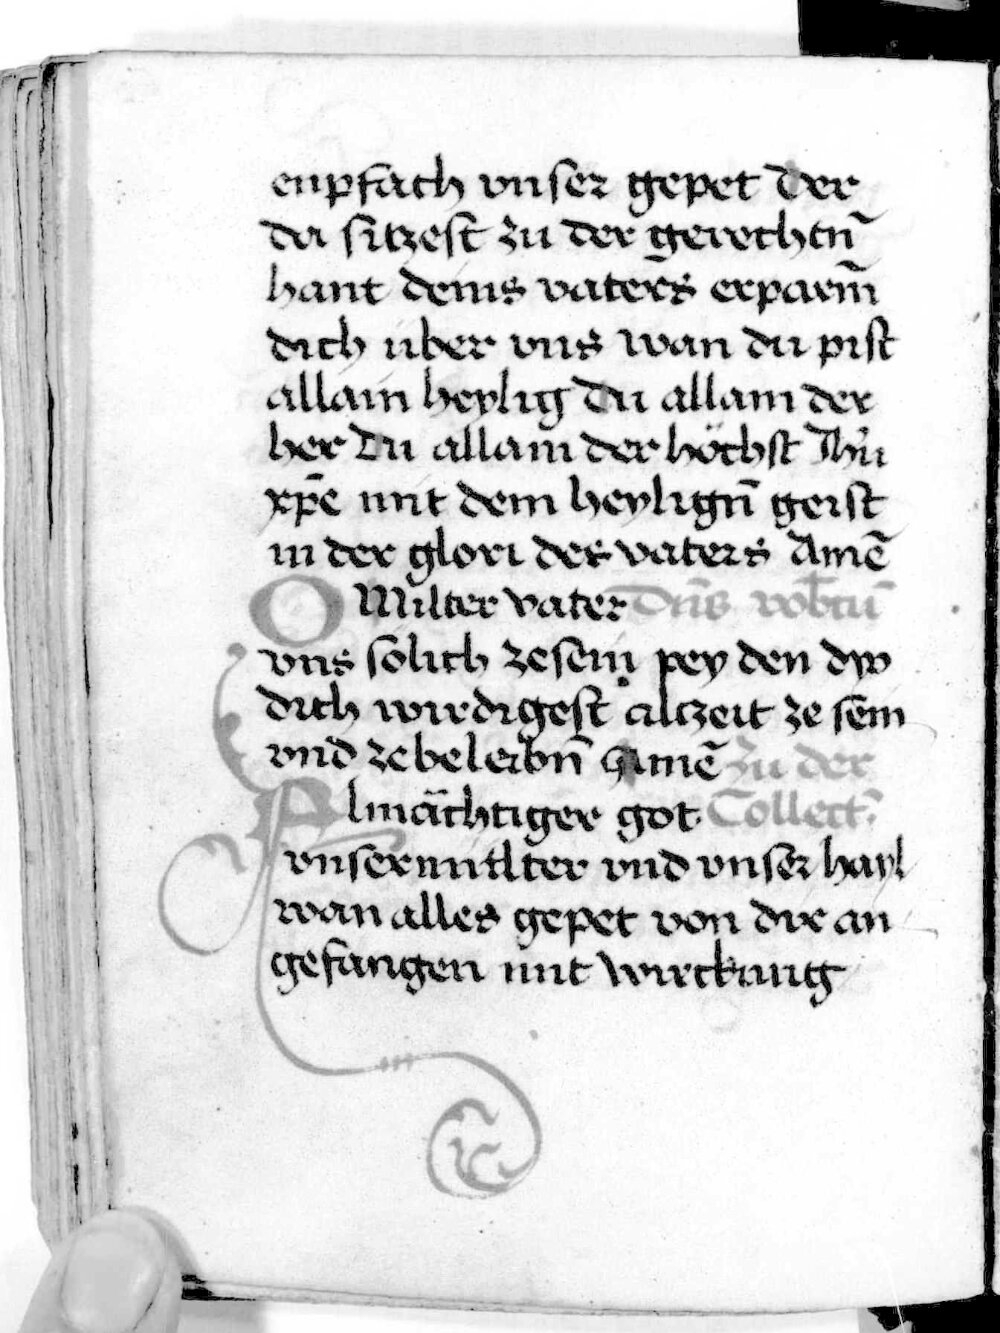 enpfach vnser gepet Der
da sitzest zu der gerechtn̄
hant deins vaters erparm̄
dich uber vns wan du pist
allain heylig Du allain der
her Du allain der höchst Jhu
xp̄e mit dem heylign̄ geist
in der glori des vaters Amē
O Milter vater Dn̄s vob̄cū
vns solich ze sein pey den dyv
dich wirdigest alczeit ze sein
vnd ze beleibn̄ Amē zu der
Almächtiger got Collect
vnser mitlter vnd vnser hayl
wan alles gepet von dir an
gefangen mit wirckung